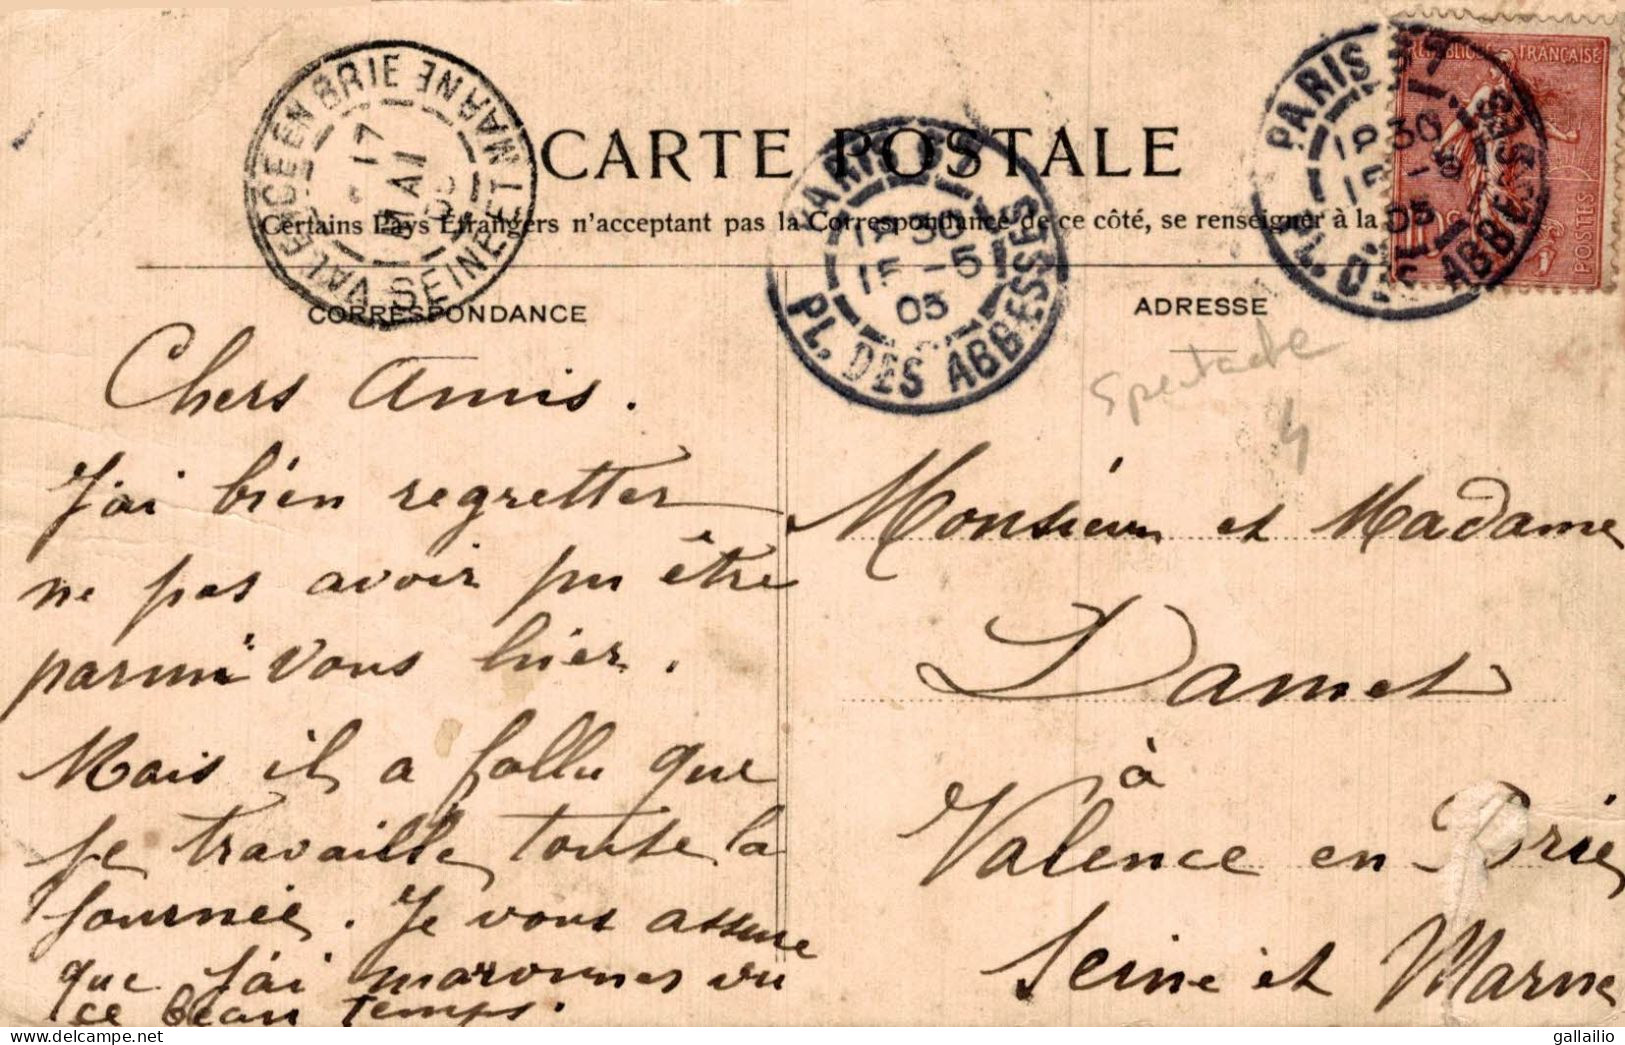 CARTE POSTALE
Certains Pays Étrangers n'acceptant pas la Correspondance de ce côté, se renseigner à la
CORRESPONDANCE
ADRESSE
VALENCE EN BRIE SEINE ET MARNE
17
MAI
05
PARIS
18 30
15 -5
05
PL. DES ABBESSES
PARIS
18 30
15 -5
05
PL. DES ABBESSES
RÉPUBLIQUE FRANÇAISE
POSTES
Spectacle
4
Chers Amis.
J'ai bien regretter
ne pas avoir pu être
parmi vous hier.
Mais il a fallu que
je travaille toute la
journée. Je vous assure
que j'ai maronner vu
ce beau temps.
Monsieur et Madame
Damet
à
Valence en Brie
Seine et Marne
delcampe.net
gallailio